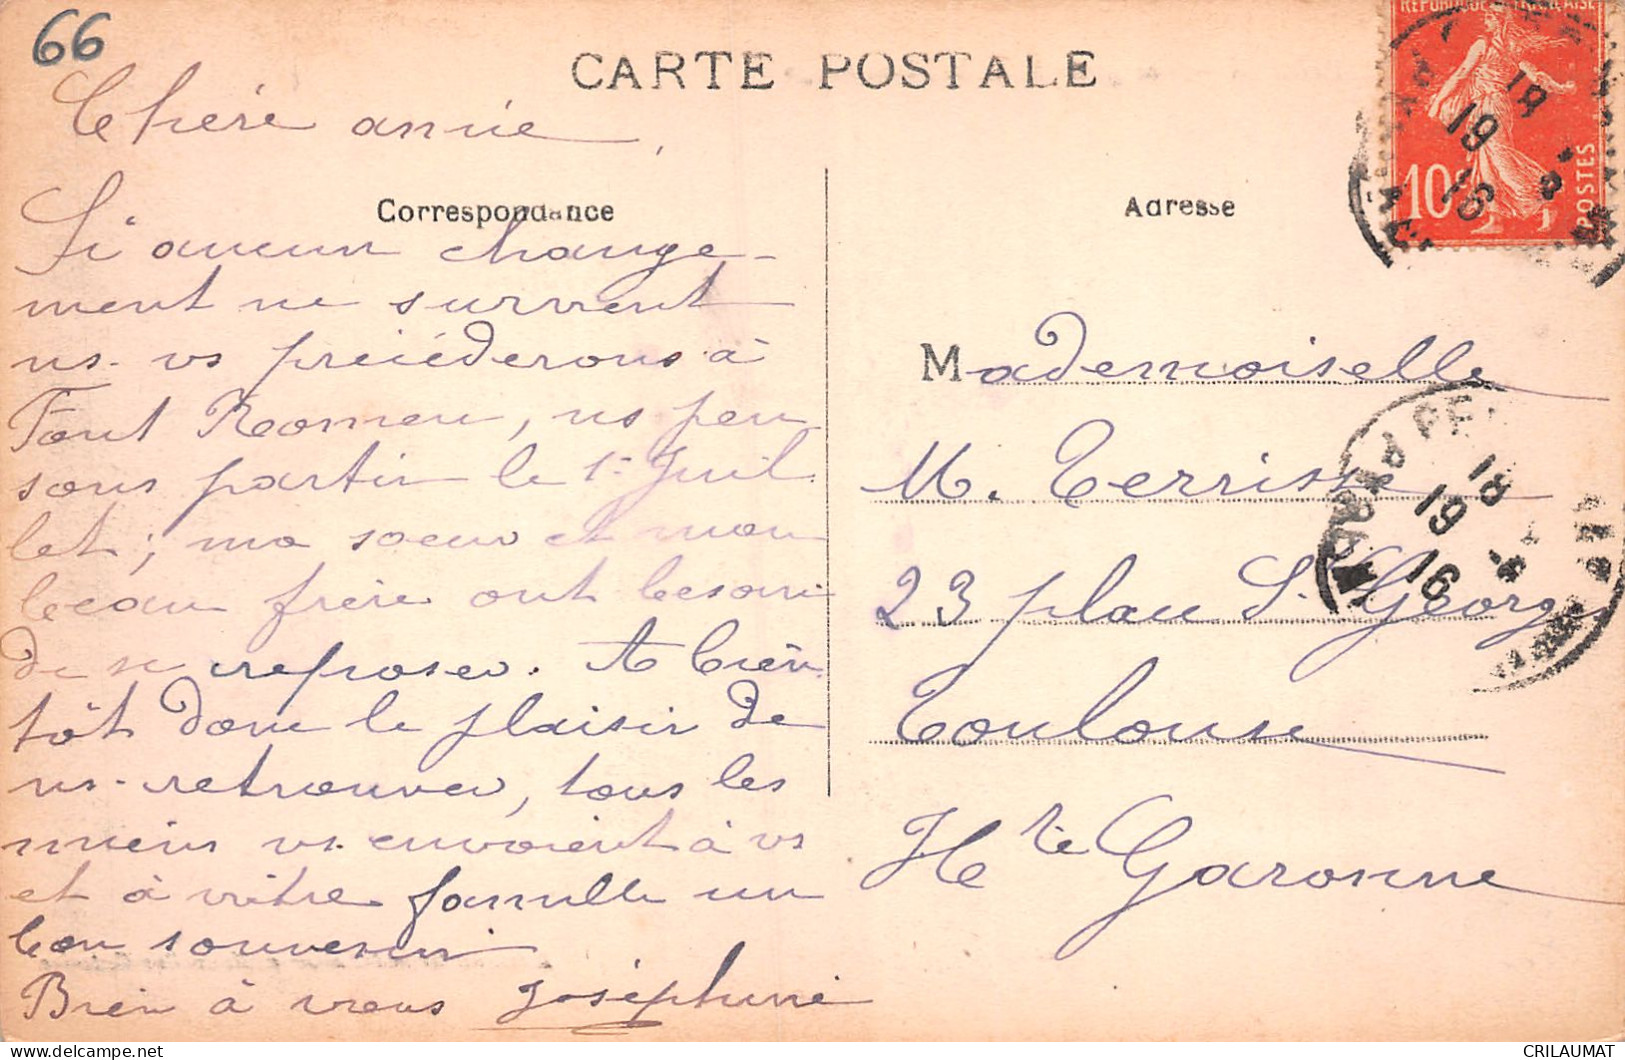 66
CARTE POSTALE
Chère amie,
Correspondance
Si aucun change-
ment ne survient
ns. vs précéderons à
Font Romeu, ns pen
sons partir le 1er Juil
let; ma soeur et mon
beau frère ont besoin
de se reposer. A bien
tôt donc le plaisir de
ns. retrouver, tous les
miens vs. envoient à vs
et à votre famille un
bon souvenir
Bien à vous Joséphine
RÉPUBLIQUE FRANÇAISE
10c
POSTES
18
19
16
Adresse
Mademoiselle
M. Terrisse
23 place St. Georges
Toulouse
Hte Garonne
18
19
16
CRILAUMAT